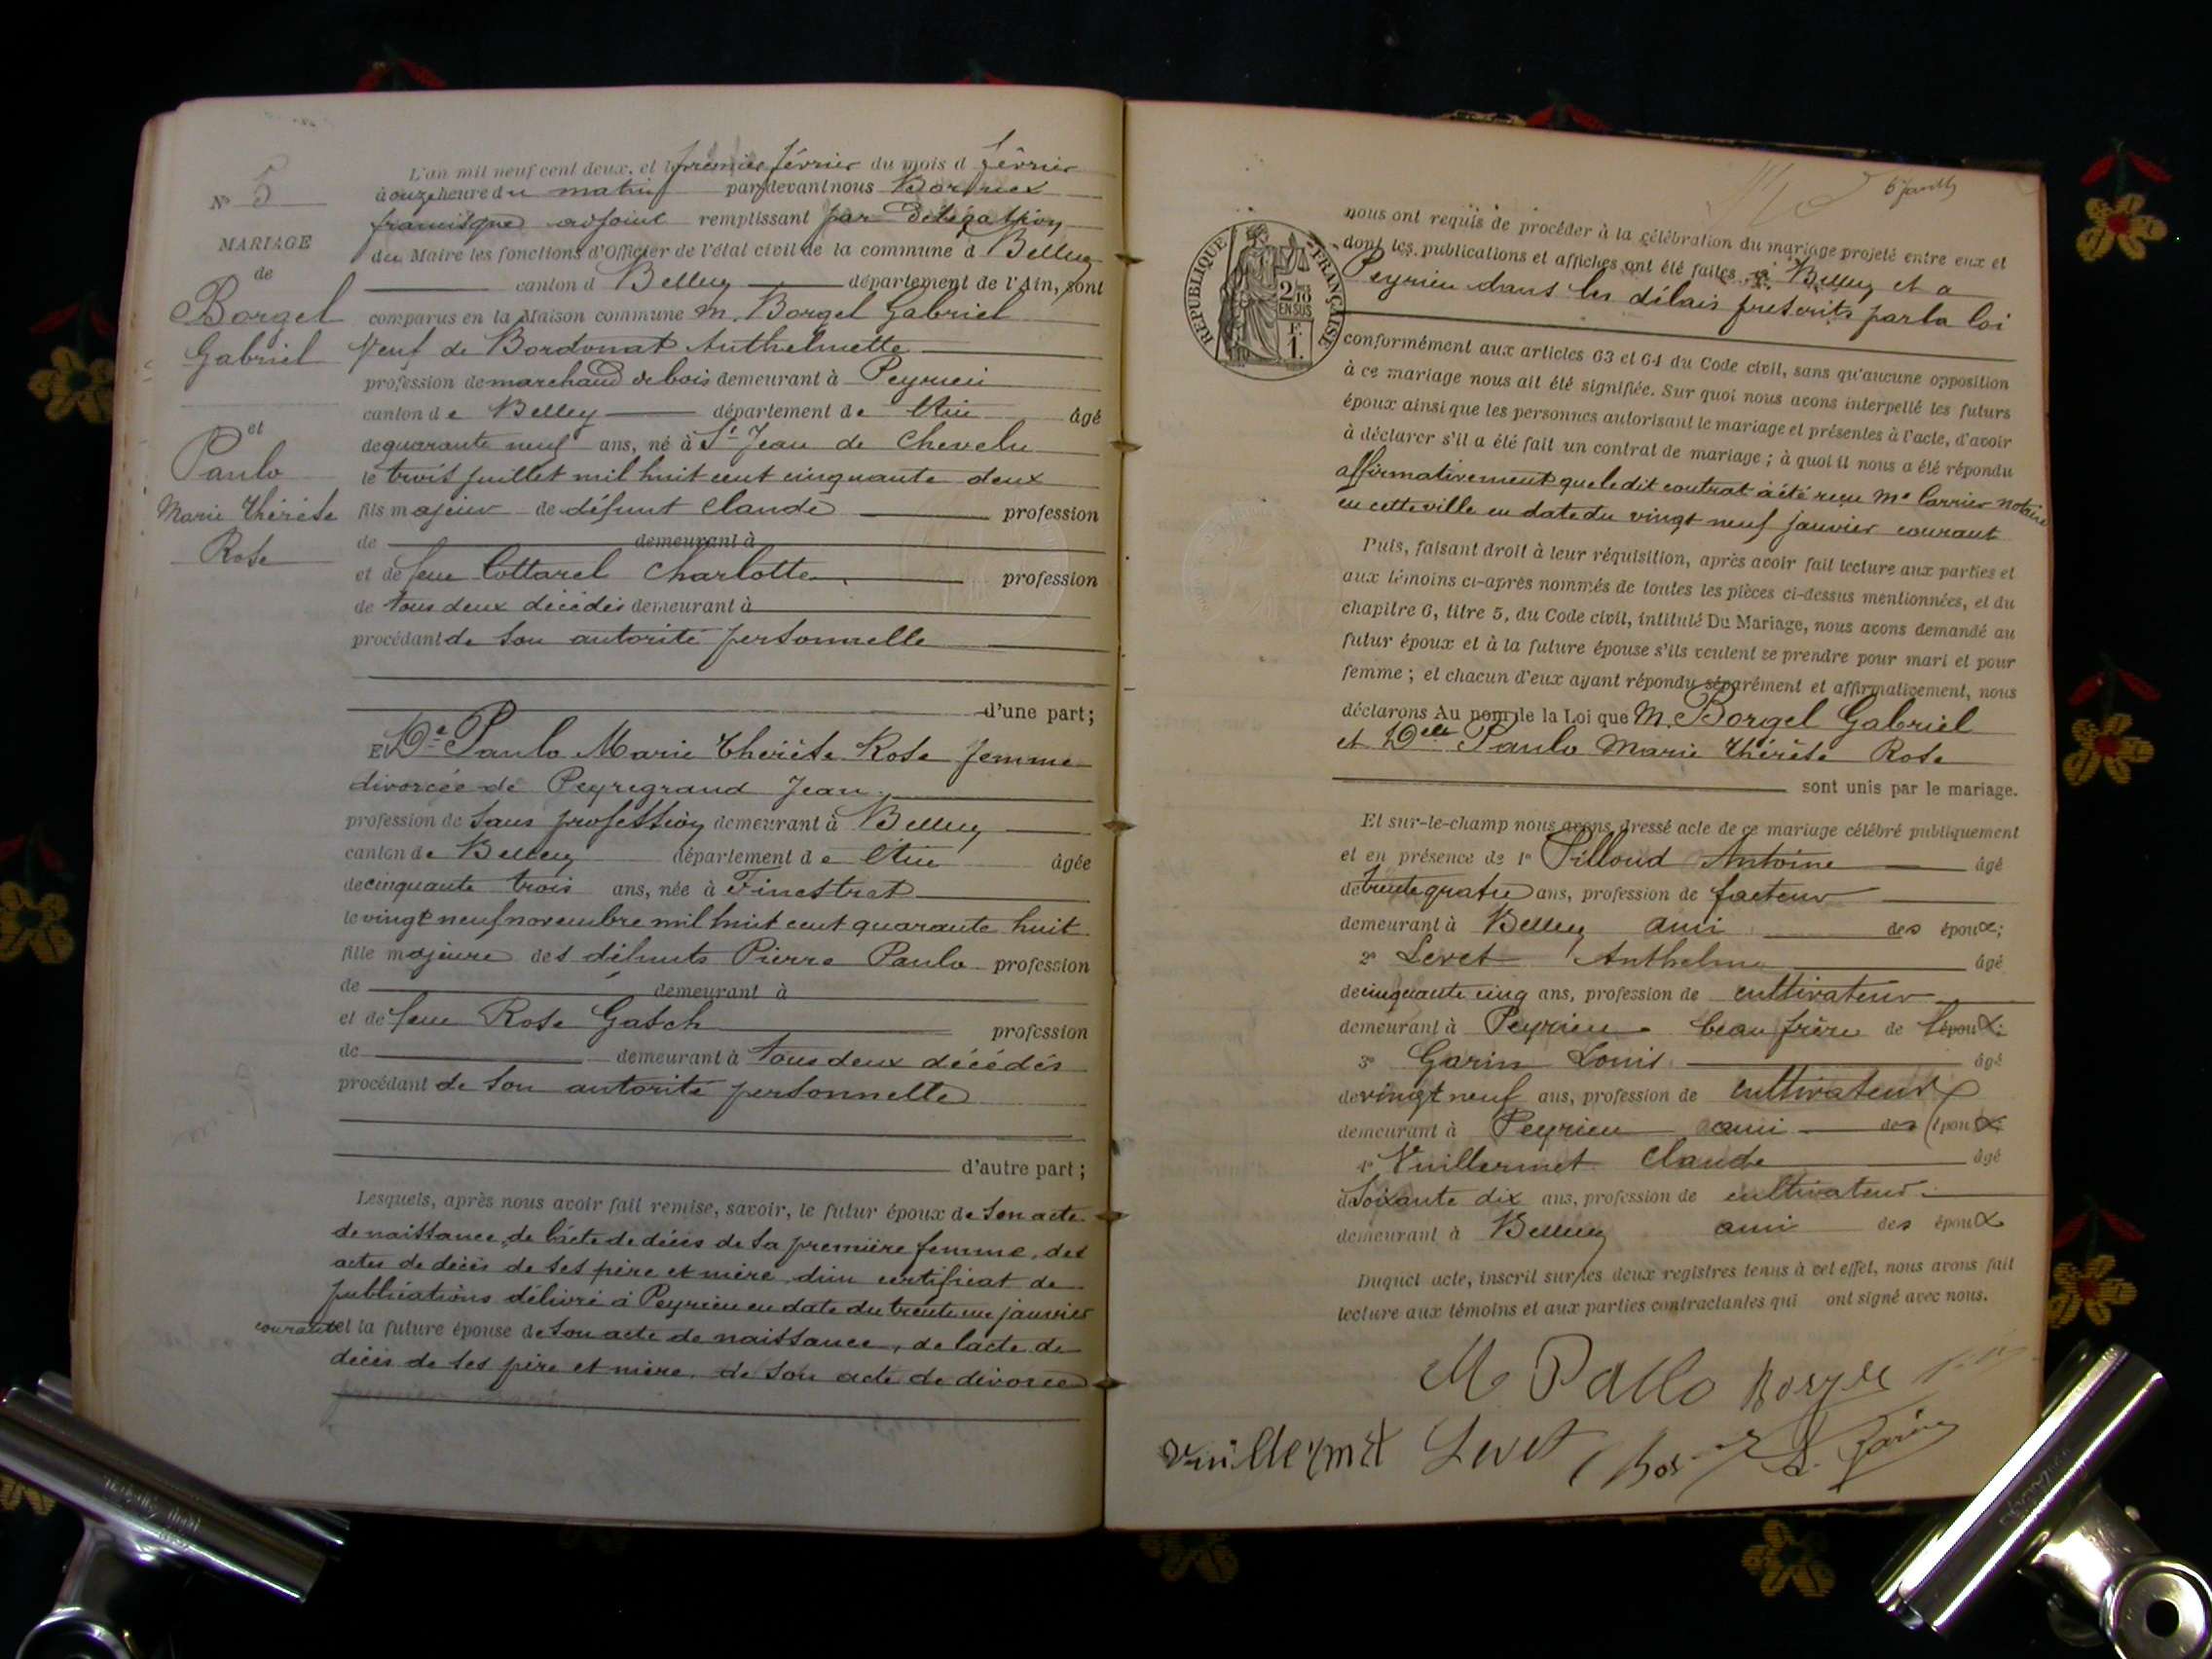 N° 5
MARIAGE
de
Borgel
Gabriel
et
Paulo
Marie Thérèse
Rose
L'an mil neuf cent deux, et le premier février du mois d février
à onze heure du matin par devant nous
francisque adjoint remplissant par Délégation
du Maire les fonctions d'Officier de l'état civil de la commune d Belley
canton d Belley département de l'Ain, sont
comparus en la Maison commune M. Borgel Gabriel
Veuf de Bordonat Anthelmette
profession de marchand de bois demeurant à Peyrieu
canton de Belley département de l'Ain âgé
de quarante neuf ans, né à St Jean de Chevelu
le trois juillet mil huit cent cinquante deux
fils majeur de défunt Claude profession
de demeurant à
et de feue Cottarel Charlotte profession
de tous deux décédés demeurant à
procédant de son autorité personnelle
d'une part;
Et De Paulo Marie Thérèse Rose femme
divorcée de Peyregrand Jean
profession de sans profession demeurant à Belley
canton de Belley département de l'Ain âgée
de cinquante trois ans, née à Finestrat
le vingt neuf novembre mil huit cent quarante huit
fille majeure des défunts Pierre Paulo profession
de demeurant à
et de feue Rose Gasch profession
de demeurant à tous deux décédés
procédant de son autorité personnelle
d'autre part;
Lesquels, après nous avoir fait remise, savoir, le futur époux de son acte
de naissance, de l'acte de décès de sa première femme, des
actes de décès de ses père et mère, d'un certificat de
publications délivré à Peyrieu en date du trente un janvier
courant et la future épouse de son acte de naissance, de l'acte de
décès de ses père et mère, de son acte de divorce
6 Janv
RÉPUBLIQUE FRANÇAISE
2/10
EN SUS
1 F.
nous ont requis de procéder à la célébration du mariage projeté entre eux et
dont les publications et affiches ont été faites à Belley et a
Peyrieu dans les délais prescrits par la loi
conformément aux articles 63 et 64 du Code civil, sans qu'aucune opposition
à ce mariage nous ait été signifiée. Sur quoi nous avons interpellé les futurs
époux ainsi que les personnes autorisant le mariage et présentes à l'acte, d'avoir
à déclarer s'il a été fait un contrat de mariage; à quoi il nous a été répondu
affirmativement que ledit contrat a été reçu Me Carrier notaire
en cette ville en date du vingt neuf janvier courant
Puis, faisant droit à leur réquisition, après avoir fait lecture aux parties et
aux témoins ci-après nommés de toutes les pièces ci-dessus mentionnées, et du
chapitre 6, titre 5, du Code civil, intitulé Du Mariage, nous avons demandé au
futur époux et à la future épouse s'ils veulent se prendre pour mari et pour
femme; et chacun d'eux ayant répondu séparément et affirmativement, nous
déclarons Au nom de la Loi que M. Borgel Gabriel
et Delle Paulo Marie Thérèse Rose
sont unis par le mariage.
Et sur-le-champ nous avons dressé acte de ce mariage célébré publiquement
et en présence de 1° Pilloud Antoine âgé
de trente quatre ans, profession de facteur
demeurant à Belley ami des époux;
2° Levet Anthelme âgé
de cinquante cinq ans, profession de cultivateur
demeurant à Peyrieu beau frère de l'époux;
3° Garin Louis âgé
de vingt neuf ans, profession de cultivateur
demeurant à Peyrieu ami des époux
4° Vuillermet Claude âgé
de soixante dix ans, profession de cultivateur
demeurant à Belley ami des époux
Duquel acte, inscrit sur les deux registres tenus à cet effet, nous avons fait
lecture aux témoins et aux parties contractantes qui ont signé avec nous.
M Paulo Borgel
Vuillermet Levet L. Garin